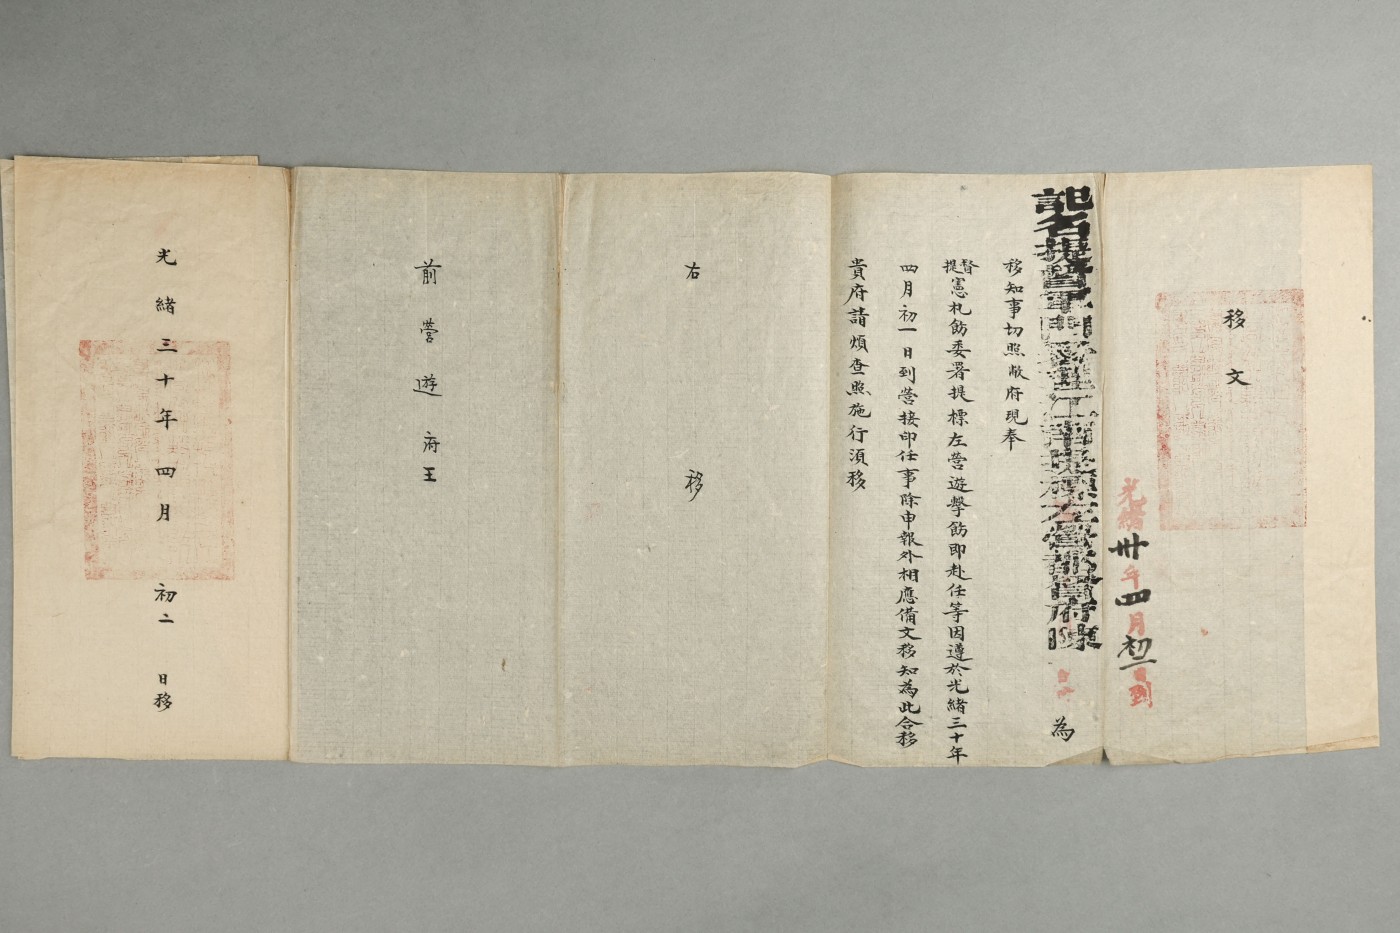 移文
光緒卅年四月初二日到
記名提督軍門署理江南提標左營遊擊府陳 為
移知事切照敝府現奉
督
提憲札飭委署提標左營遊擊飭即赴任等因遵於光緒三十年
四月初一日到營接印任事除申報外相應備文移知為此合移
貴府請煩查照施行須移
右移
前營遊府王
光緒三十年四月初二日移